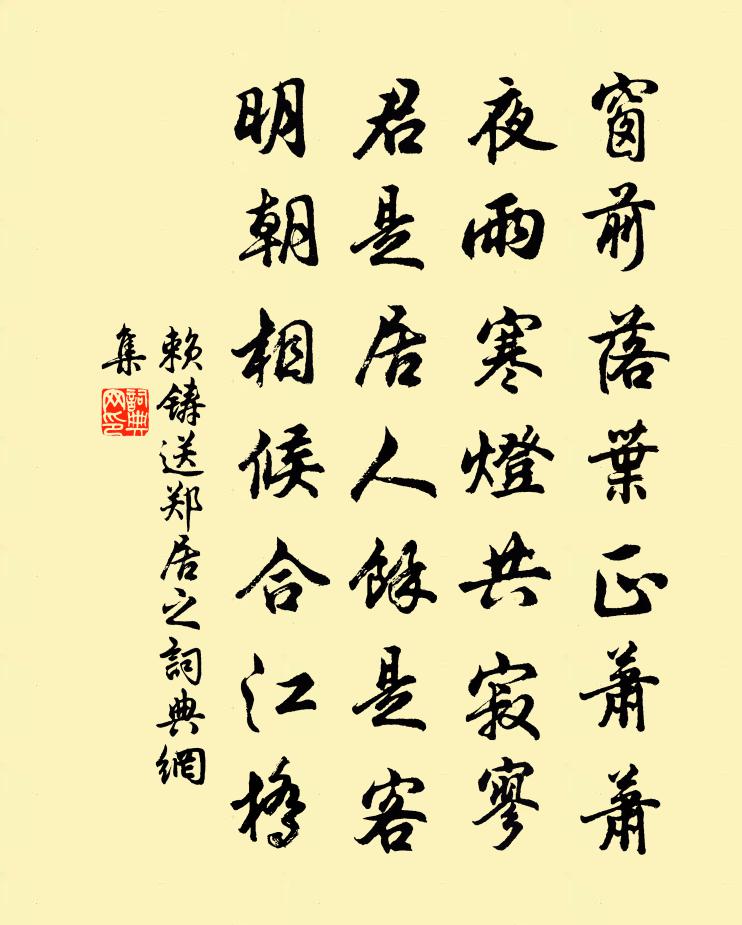 窗前落葉正蕭蕭
夜雨寒燈共寂寥
君是居人餘是客
明朝相候合江橋
赖鑄送郑居之詞典網
集
詞典網印